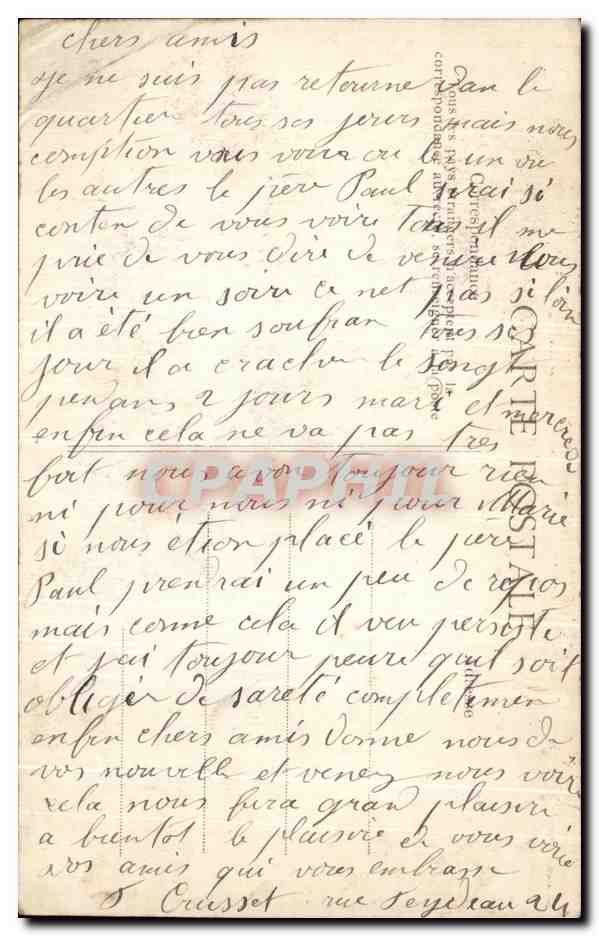 chers amis
je ne suis pas retourne dan le
quartier tous ses jours mais nous
comption vous voire ou le un ou
les autres le père Paul serai si
conten de vous voire tous il me
prie de vous dire de venire nous
voire un soire ce net pas si loin
il a été bien soufran tous se
jour il a crachue le sang
pendans 2 jours mari et mercredi
enfin cela ne va pas tres
fort nous avon toujour rien
ni pour nous ni pour Marie
si nous étion placé le père
Paul prendrai un peu de repos
mais comme cela il veu persiste
et j'ai toujour peure quil soit
obliger de sareté complètemen
enfin chers amis donne nous de
vos nouvelle et venez nous voire
cela nous fera gran plaisire
a bientot le plaisire de vous voire
vos amis qui vous embrasse
Crusset rue Feydeau 24
CARTE POSTALE
Tous les pays étrangers n'acceptent pas la
correspondance au recto, se renseigner à la poste
Correspondance
Adresse
CPAPHIL